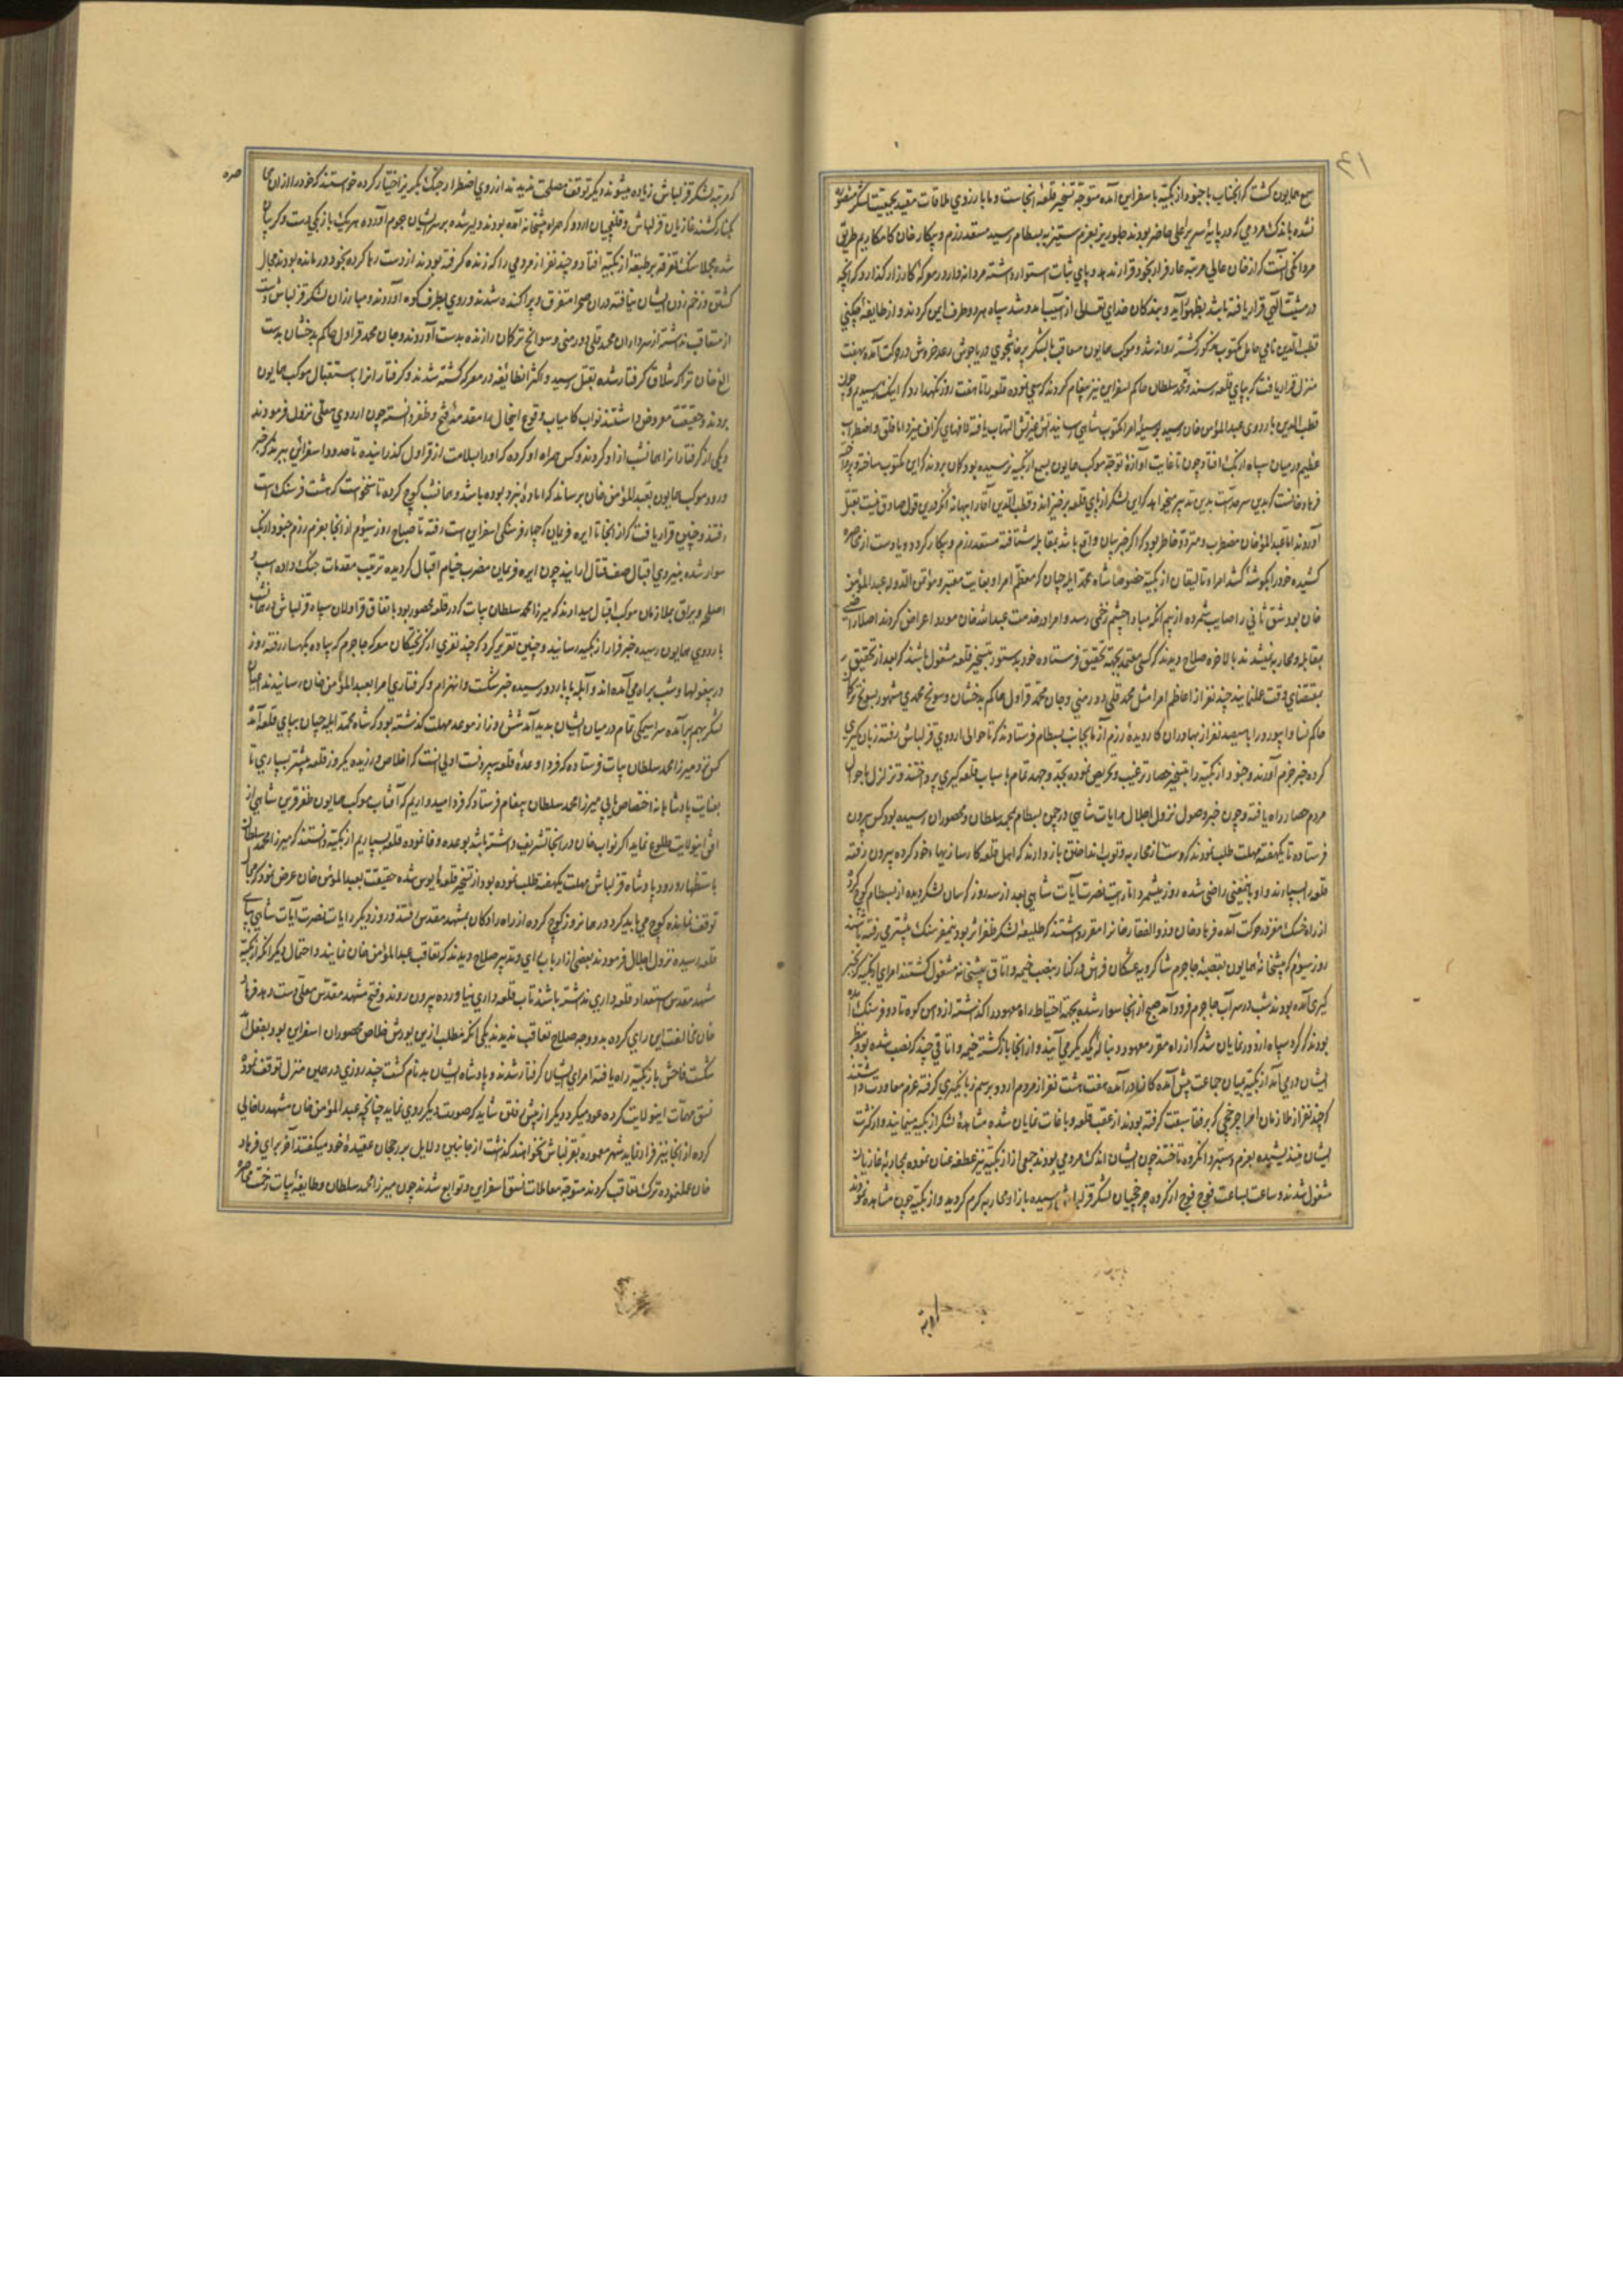 سمع همایون کشت که آنجناب با جنود ازبکیه باسفراین آمده متوجه تسخیر قلعه آنجاست و ما بارزوی ملاقات مقید بجمعیت لشکر
نشده باندک مردمی که در پایه سریر اعلی حاضر بودند جلوریز بعزم ستیز به بسطام رسید مستعد رزم و پیکار خان کامکاریم طریق
مردانگی آنست که از خان عالی مرتبه عار فرار بخود قرار ندهد و پای ثبات استوار داشته مردانه وار در معرکه کارزار کذارد که آنچه
در مشیت الهی قرار یافته باشد بظهور آید و بندکان خدای تعالی از آسیب آمد و شد سپاه هر دو طرف ایمن کردند و از طایفه چکنی
قطب الدین نامی حامل مکتوب مذکور کشته روانه شد و موکب همایون متعاقب با لشکر پرخاشجوی دریا جوش رعد خروش در حرکت آمده بهفت
منزل قرار یافت که بپای قلعه رسند و محمد سلطان حاکم اسفراین نیز پیغام کردند که سعی نموده قلعه را تا هفت روز نکهدارد که اینک رسیدیم چون
قطب الدین باردوی عبدالمؤمن خان رسید بوسیله امرا مکتوب شاهی رسانید آتش غیرتش التهاب یافته لافهای کزاف میزد اما قلق و اضطراب
عظیم در میان سپاه ازبک افتاد چون تا غایت آوازه توجه موکب همایون بسمع ازبکیه نرسیده بود کمان بردند که این مکتوب ساخته و پرداخته
فرهاد خانست که بدین سرحدست بدین تدبیر میخواهد که این لشکر از پای قلعه برخیزاند و قطب الدین آقا را
آوردند اما عبدالمؤمنخان مضطرب و متردد خاطر بود که اگر خبر بیان واقع باشد بمقابله شتافته مستعد رزم و پیکار کردد و یا دست از محاصره
کشیده خود را بکوشه کشد امراء تالیقان ازبکیه خصوصا شاه محمد ایله چیان که معظم امرا و بغایت معتبر و مؤتمن الدوله عبدالمؤمن
خان بود شق ثانی را صایب شمرده از بیم آنکه مبادا چشم زخمی رسد و امرا در خدمت عبدالله خان مورد اعراض کردند اصلا راضی
بمقابله و محاربه نمیشدند بالاخره صلاح دیدند که کسی معتمد بجهة تحقیق فرستاده خود بدستور بتسخیر قلعه مشغول باشند که بعد از تحقیق
بمقتضای وقت عمل نمایند چند نفر از اعاظم امرا مثل محمد قلی دورمنی و جان محمد قراول حاکم بدخشان و سونج محمدی مشهور بسونج ترکان
حاکم نسا و ابیورد را با سیصد نفر از بهادران کار دیده رزم آزما بجانب بسطام فرستادند که تا حوالی اردوی قزلباش رفته زبان کیری
کرده خبر جزم آورند و جنود ازبکیه را بتسخیر حصار ترغیب و تحریص نموده بجد و جهد تمام باسباب قلعه کیری پرداختند و تزلزل باحوال
مردم حصار راه یافته و چون خبر وصول نزول اجلال رایات شاهی در چمن بسطام بمحمد سلطان و محصوران رسیده بود کس بیرون
فرستاده تا یکهفته مهلت طلب نمودند که دست از محاربه و توب انداختن باز دارند که اهل قلعه کار سازیهاء خود کرده بیرون رفته
قلعه را بسپارند و او باینمعنی راضی شده روز میشمرد اما رایت نصرت آیات شاهی بعد از سه روز که سان لشکر دیده از بسطام کوچ کرده
از راه خشک مغز در حرکت آمده فرهاد خان و ذوالفقار خانرا مقرر داشتند که طلیعه لشکر ظفر اثر بوده نیمفرسنک پیشتر می رفته باشند
روز سیوم که پیشخانه همایون بقصبه جاجرم
کیری آمده بودند شب در سر آب جاجرم فرود آمده صبح از آنجا سوار شده بجهة احتیاط راه معهود را کذاشته از دامن کوه تا دو فرسنک آمده
بودند که کرد سپاه اردو نمایان شد که از راه مقرر معهود دنباله یکدیکر می آیند و از آنجا بازکشته خیمه و اتاقی چند که نصب شده بود بنظر
ایشان درمی آمد ازبکیه بمیان جماعت پیش آمده کان در آمده هفت هشت نفر از مردم اردو برسم زبانکیری کرفته عزم معاودت داشتند
که چند نفر از ملازمان امرا چرخچی که بر رفقا سبقت کرفته بودند از عقب قلعه و باغات نمایان شده مشاهده لشکر ازبکیه مینمایند و از کثرت
ایشان نیندیشیده بعزم دستبرد بآنکروه تاختند چون ایشان اندک مردمی بودند جمعی از ازبکیه نیز عطف عنان نموده بمجادله غازیان
مشغول شدند و ساعت بساعت فوج فوج از کروه چرخچیان لشکر قزلباش رسیده بازار محاربه کرم کردید و ازبکیه چون مشاهده نمودند
که مرتبه لشکر قزلباش زیاده میشوند دیکر توقف مصلحت ندیدند از روی اضطرار جنک بکریز اختیار کرده خواستند که خود را از آن
بکنار کشند غازیان قزلباش و قلقچیان اردو که همراه پیشخانه آمده بودند دلیر شده بر سر ایشان هجوم آورده هر یک با ازبکی دست و کریبان
شده مجملا سنک تفرقه بر طبقه ازبکیه افتاد و چند نفر از مردمی را که زنده کرفته بودند از دست رها کرده بخود درمانده بودند مجال
کشتن و زخم زدن ایشان نیافته در آن صحرا متفرق و پراکنده شدند و روی بطرف کوه آوردند و مبارزان لشکر قزلباش دست
از متعاقب نداشته از سرداران محمد قلی دورمنی و سوانج ترکان را زنده بدست آوردند و جان محمد قراول حاکم بدخشان بدست
الغ خان ترا کرفتار شده بقتل رسید و اکثر انطایفه در معرکه کشته شدند و کرفتارانرا باستقبال موکب همایون
بردند و حقیقت معروض داشتند نواب کامیاب وقوع اینحال را مقدمه فتح و ظفر دانسته چون اردوی معلی نزول فرمودند
و یکی از کرفتارانرا همانشب آزاد کردند و کس همراه او کرده که او را بسلامت از قراول کذرانیده تا حدود اسفراین ببرند که خبر
ورود موکب همایون بعبدالمؤمن خان برساند که آماده نبرد بوده باشد و همانشب کوچ کرده تا سنخواست که هشت فرسنک است
رفتند و چنین قرار یافت که از آنجا تا ایره قرمایان که چهار فرسنکی اسفراین است رفته تا صباح روز سیوم از آنجا بعزم رزم جنود ازبک
سوار شده بنیروی اقبال صف قتال آرایند چون ایره قرمایان مضرب خیام اقبال کردیده ترتیب مقدمات جنک داده اسپ
اسلحه و یراق بملازمان موکب اقبال میدادند که میرزا محمد سلطان بیات که در قلعه محصور بود باتفاق قراولان سپاه قزلباش در همانشب
باردوی همایون رسیده خبر فرار ازبکیه رسانید و چنین تقریر کرد که چند نفری از کریختکان معرکه جاجرم که پیاده بکهسار رفته روز
در بیغولها و شب براه می آمده اند و آبله پا باردو رسیده خبر شکست و انهزام و کرفتاری امرا بعبدالمؤمن خان رسانیدند میان
لشکر بهم برآمده سراسیمکی تمام در میان ایشان بدید آمد شش روز از موعد مهلت کذشته بود که شاه محمد ایله چیان بپای قلعه آمده
کس نزد میرزا محمد سلطان بیات فرستاده که فردا وعده قلعه سپردنست اولی آنست که اخلاص ورزیده یکروز قلعه پیشتر بسپاری تا
بعنایت پادشاهانه اختصاص یابی میرزا محمد سلطان پیغام فرستاد که فردا امیدواریم که آفتاب موکب همایون ظفر قرین شاهی از
افق اینولایت طلوع نماید اکر نواب خان در اینجا تشریف داشته باشد بوعده وفا نموده قلعه بسپاریم ازبکیه دانستند که میرزا محمد سلطان
باستظهار ورود پادشاه قزلباش مهلت یکهفته طلب نموده بود از تسخیر قلعه مأیوس شده حقیقت بعبدالمؤمن خان عرض نمود که مجال
توقف نمانده کوچ می باید کرد در همانروز کوچ کرده از راه رادکان بمشهد مقدس رفتند و روز دیکر رایات نصرت آیات شاهی بپای
قلعه رسیده نزول اجلال فرمودند بعضی از ارباب رای و تدبیر صلاح دیدند که تعاقب عبدالمؤمن خان نمایند و احتمال دیکر آنکه ازبکیه
مشهد مقدس استعداد قلعه داری نداشته باشند تاب قلعه داری نیاورده بیرون روند و فتح مشهد مقدس معلی دست دهد فرهاد
خان مخالفت این رای کرده بدو وجه صلاح تعاقب ندیدند یکی آنکه مطلب ازین یورش خلاص محصوران اسفراین بود بفعل آمد
شکست فاحش بازبکیه راه یافته امرای ایشان کرفتار شدند و پادشاه ایشان بدنام کشت چند روزی در همین منزل توقف نموده
نسق مهمات اینولایت کرده عود میکردد دیکر از پیش رفتن شاید که صورت دیکر روی نماید چنانچه عبدالمؤمن خان مشهد را خالی
کرده از آنجا نیز فرار نماید شهر معموره بقزلباش نخواهند کذاشت از جانبین دلایل بر رجحان عقیده خود میکفتند آخر برای فرهاد
خان عمل نموده ترک تعاقب کردند متوجه معاملات نسق اسفراین و توابع شدند چون میرزا محمد سلطان و طایفه بیات زحمت محاصره